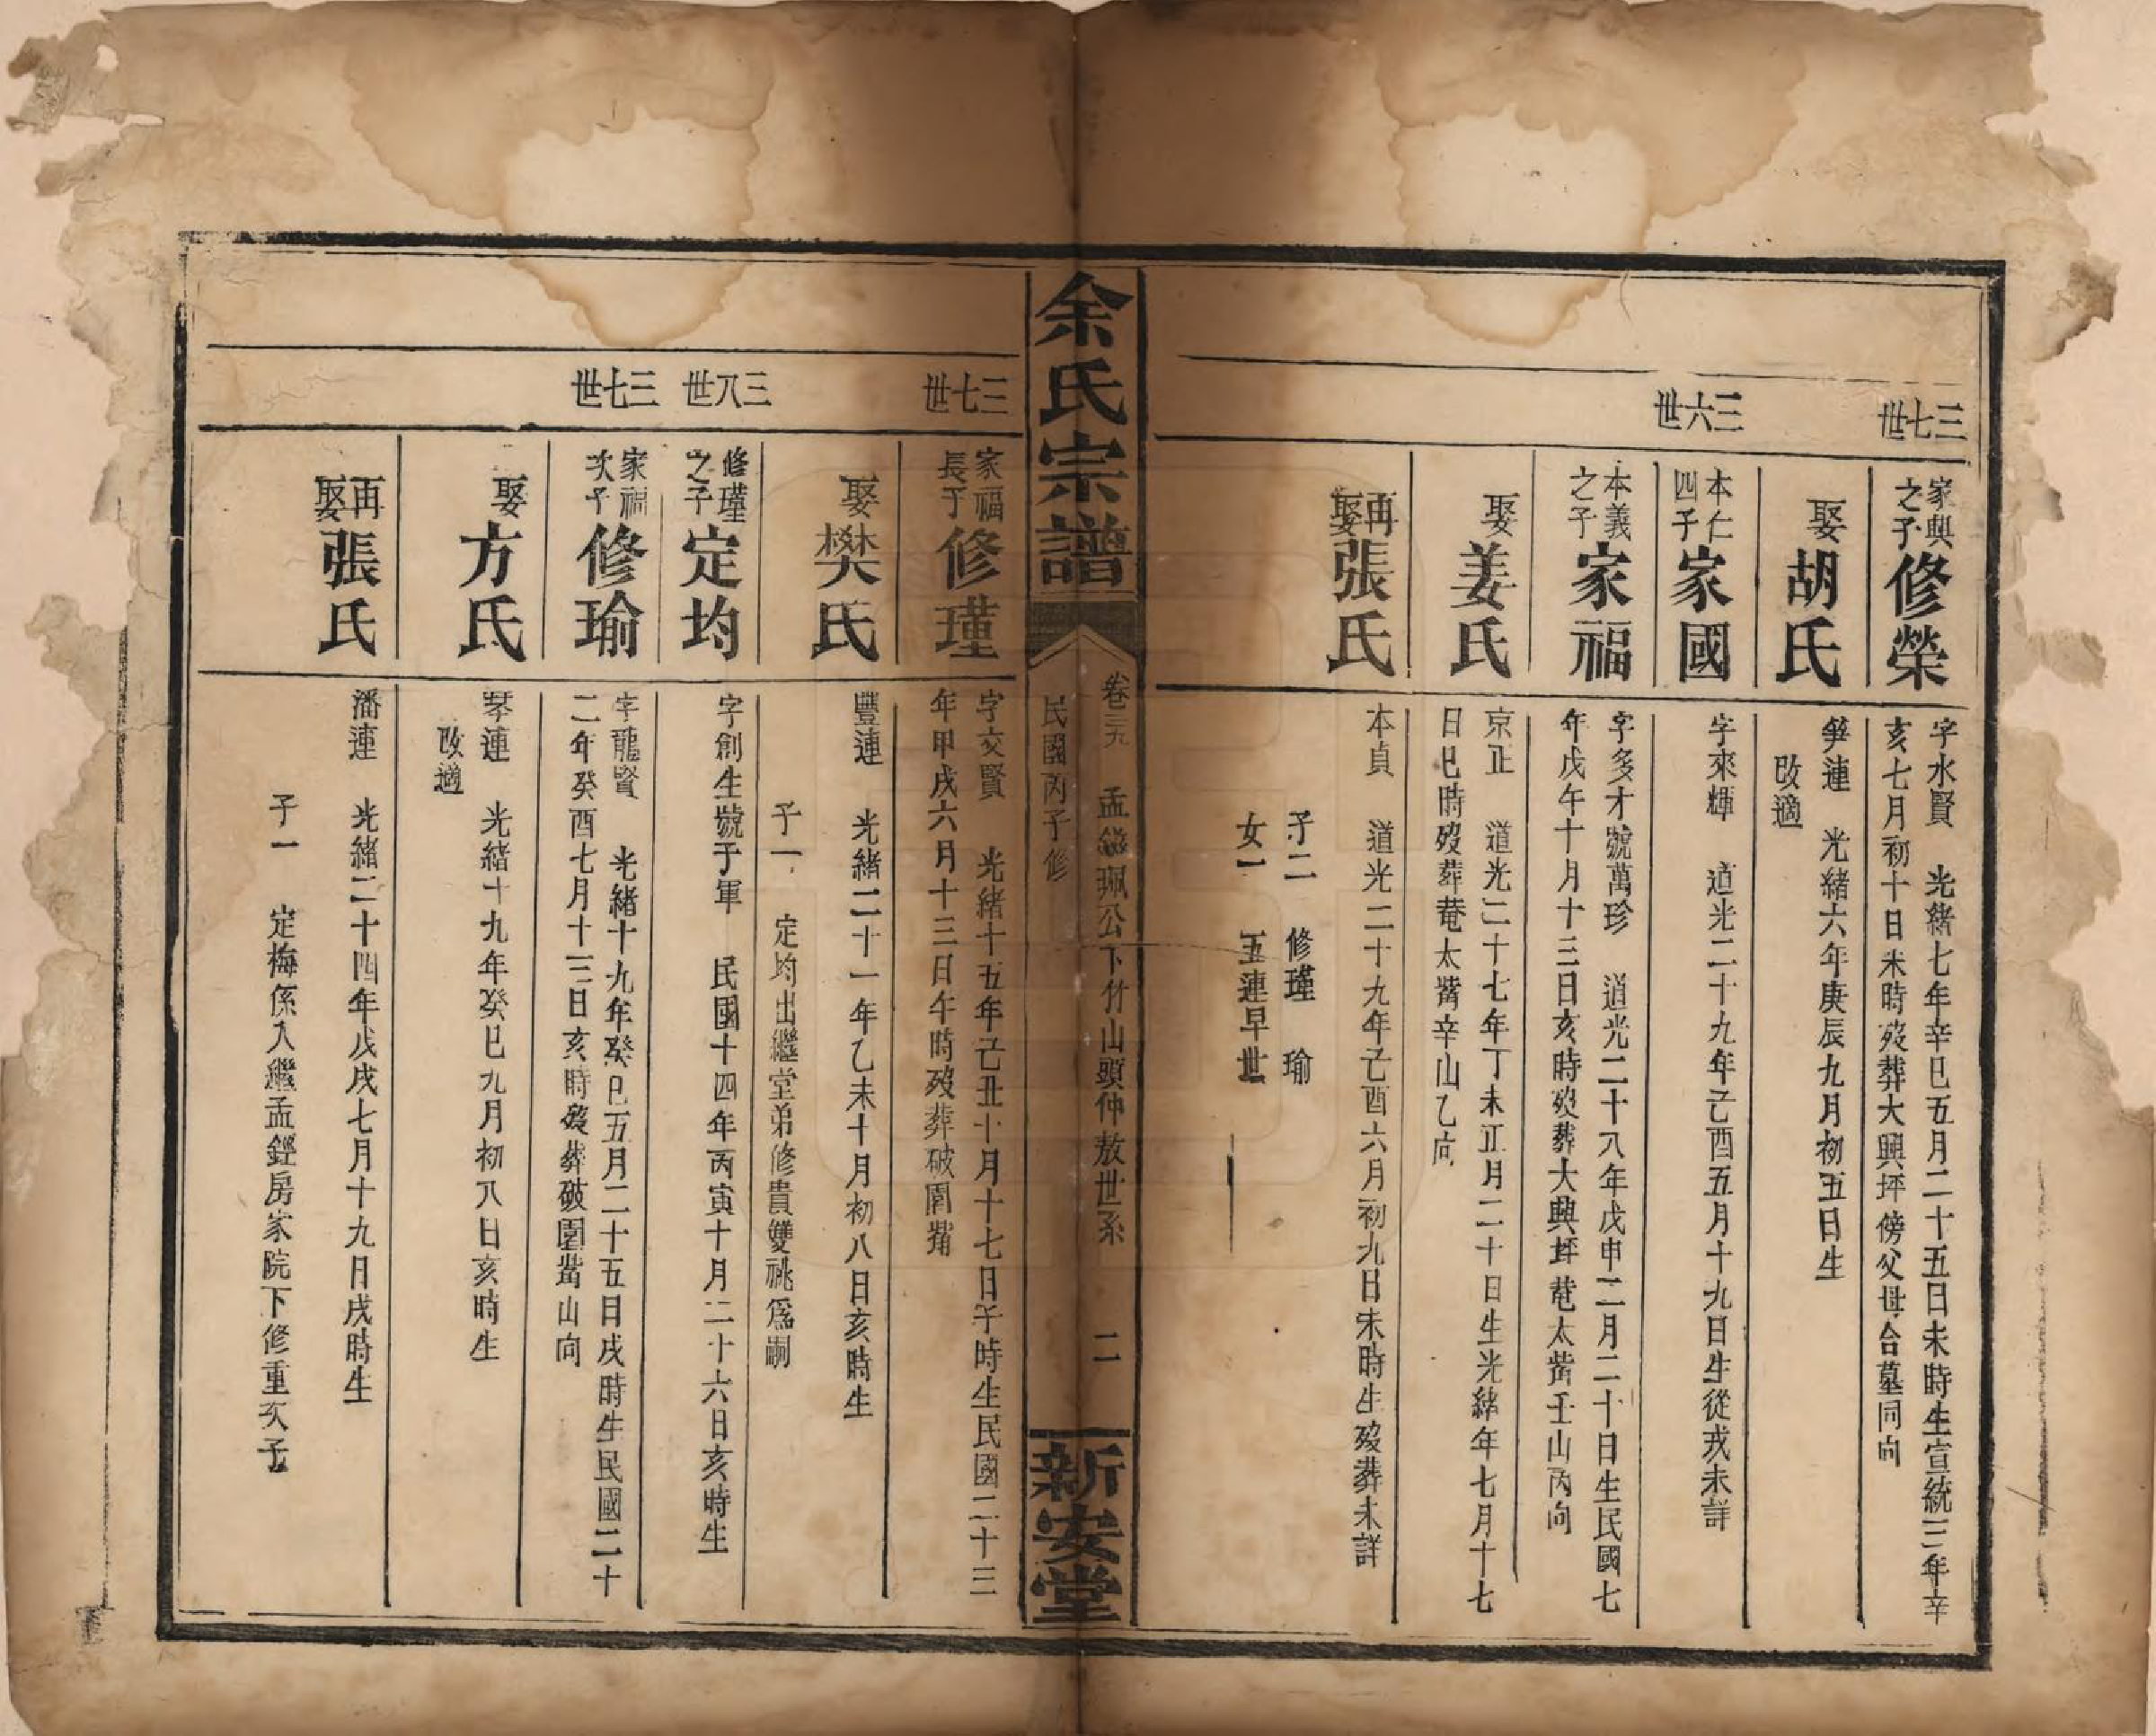 三七世
家興之子修榮
字水賢　光緒七年辛巳五月二十五日未時生宣統三年辛
亥七月初十日未時歿葬大興坪傍父母合墓同向
娶胡氏
笋連　光緒六年庚辰九月初五日生
改適
三六世
本仁四子家國
字來輝　道光二十九年己酉五月十九日生從戎未詳
本義之子家福
字多才號萬珍　道光二十八年戊申二月二十日生民國七
年戊午十月十三日亥時歿葬大興坪菴太嘴壬山丙向
娶姜氏
京正　道光二十七年丁未正月二十日生光緒年七月十七
日巳時歿葬菴太嘴辛山乙向
再娶張氏
本貞　道光二十九年己酉六月初九日未時生歿葬未詳
子二　修瑾　瑜
女一　五連早世
余氏宗譜
卷三九　孟　珮公下竹山頭仲敖世系　二
民國丙子修
新安堂
三七世
家福長子修瑾
字交賢　光緒十五年己丑十月十七日午時生民國二十三
年甲戌六月十三日午時歿葬破園嘴
娶樊氏
豐連　光緒二十一年乙未十月初八日亥時生
子一　定均出繼堂弟修貴雙祧爲嗣
三八世
修瑾之子定均
字創生號于軍　民國十四年丙寅十月二十六日亥時生
三七世
家福次子修瑜
字龍賢　光緒十九年癸巳五月二十五日戌時生民國二十
二年癸酉七月十三日亥時歿葬破園嘴山向
娶方氏
琴連　光緒十九年癸巳九月初八日亥時生
改適
再娶張氏
潘連　光緒二十四年戊戌七月十九日戌時生
子一　定梅係入繼孟鏗房家院下修重次子